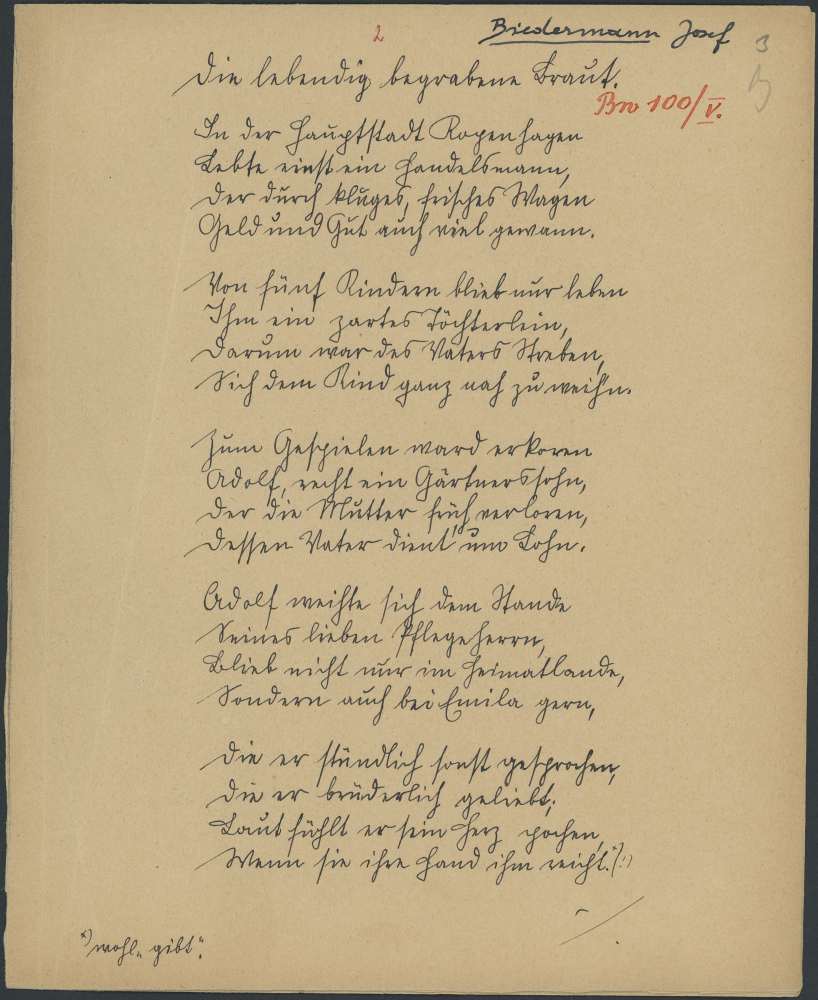 2
Biedermann Josef
3
Die lebendig begrabene Braut.
Bw 100/V.
In der Hauptstadt Kopenhagen
Lebte einst ein Handelsmann,
Der durch kluges, frisches Wagen
Geld und Gut auch viel gewann.
Von fünf Kindern blieb nur leben
Ihm ein zartes Töchterlein,
Darum war des Vaters Streben,
Sich dem Kind ganz nah zu weih'n.
Zum Gespielen ward erkoren
Adolf, recht ein Gärtnerssohn,
Der die Mutter früh verloren,
Dessen Vater dient' um Lohn.
Adolf weihte sich dem Stande
Seines lieben Pflegeherrn,
Blieb nicht nur im Heimatlande,
Sondern auch bei Emila gern,
Die er stündlich sonst gesprochen,
Die er brüderlich geliebt;
Laut fühlt er sein Herz pochen,
Wenn sie ihre Hand ihm reicht.*) (!)
*) wohl „gibt“.